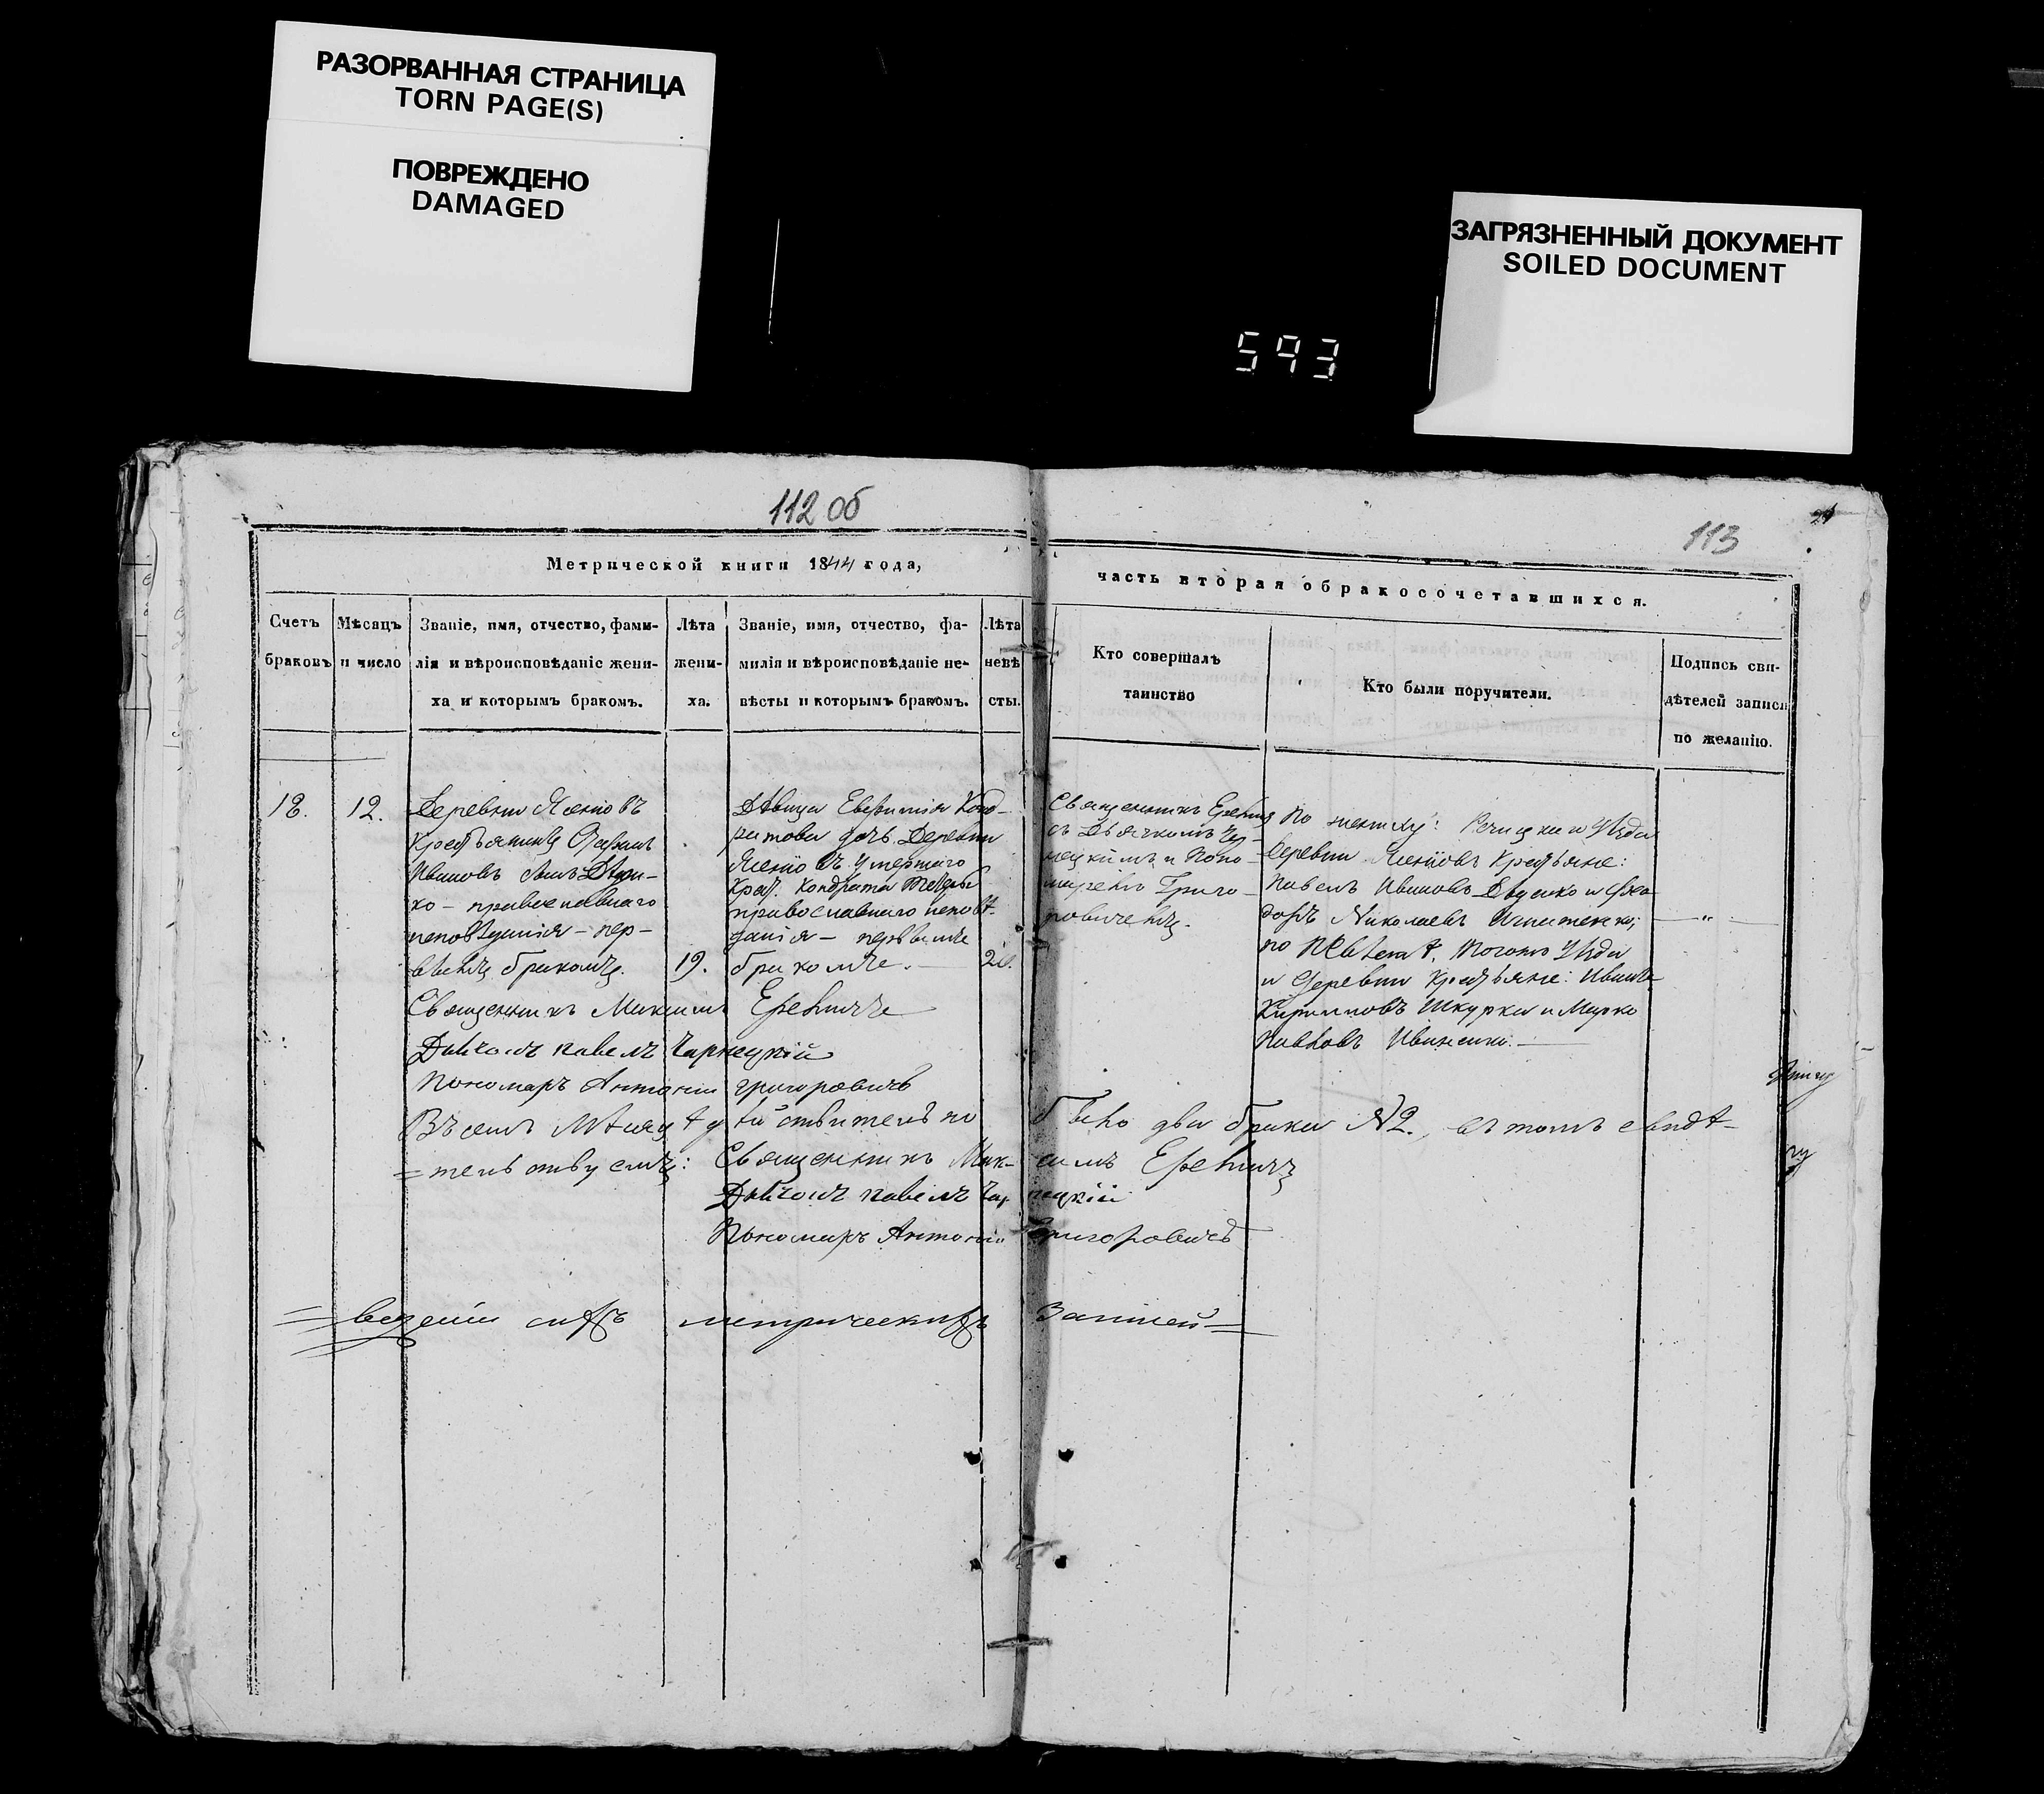 РАЗОРВАННАЯ СТРАНИЦА
TORN PAGE(S)
ПОВРЕЖДЕНО
DAMAGED
ЗАГРЯЗНЕННЫЙ ДОКУМЕНТ
SOILED DOCUMENT
593
112 об
113
Метрической книги 1844 года,
часть вторая о бракосочетавшихся.
Счетъ
браковъ
Мѣсяцъ
и число
Званіе, имя, отчество, фами-
лія и вѣроисповѣданіе жени-
ха и которымъ бракомъ.
Лѣта
жени-
ха.
Званіе, имя, отчество, фа-
милія и вѣроисповѣданіе не-
вѣсты и которымъ бракомъ.
Лѣта
невѣ
сты.
Кто совершалъ
таинство
Кто были поручители.
Подпись сви-
дѣтелей записи
по желанію.
18.
12.
Деревни
Крестьянинъ
Ивановъ сынъ
ко - православнаго
исповѣданія - пер-
вымъ бракомъ.
19.
Дѣвица Евфимія Конд-
ратова дочь Деревни
умершаго
Крест. Кондрата
православнаго исповѣ-
данія - первымъ
бракомъ.
Священникъ
съ Дьячкомъ Чар-
нецкимъ и Поно-
маремъ Григо-
ровичемъ.
По жениху: Речицкаго Уѣзда
Деревни Крестьяне:
Павелъ Ивановъ и Фео-
доръ Николаевъ Игнатенко;
по невѣстѣ. Тогожъ Уѣзда
и Деревни Крестьяне: Иванъ
Шкурка и Марко
— „ —
Священникъ Максимъ
Павелъ Чарнецкій
Пономарь Антоній Григоровичъ
Въ семъ мѣсяцѣ дѣйствительно было два брака №2., въ томъ свидѣ-
=тельствуемъ: Священникъ Максимъ
Павелъ Чарнецкій
Пономарь Антоній Григоровичъ
сихъ метрическихъ